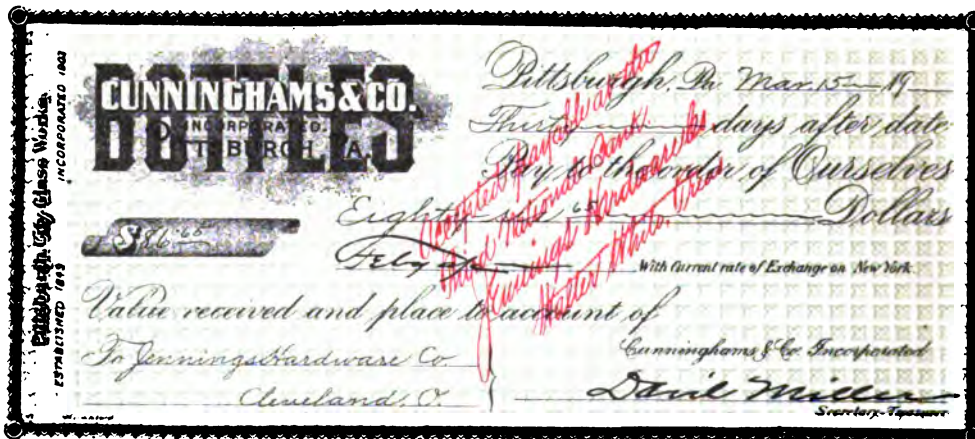 Pittsburgh City Glass Works
ESTABLISHED 1849
INCORPORATED 1902
BOTTLES
CUNNINGHAMS & CO.
INCORPORATED
PITTSBURGH, PA.
Pittsburgh, Pa. Mar. 15 — 19
Thirty days after date
Pay to the order of Ourselves
Eighty six 65 Dollars
$86.65
With Current rate of Exchange on New York
Value received and place to account of
To Jennings Hardware Co.
Cleveland, O.
Cunninghams & Co. Incorporated
David Miller
Secretary-Treasurer
Accepted payable at the
Third National Bank.
Jennings Hardware Co.
Walter White, Treas.